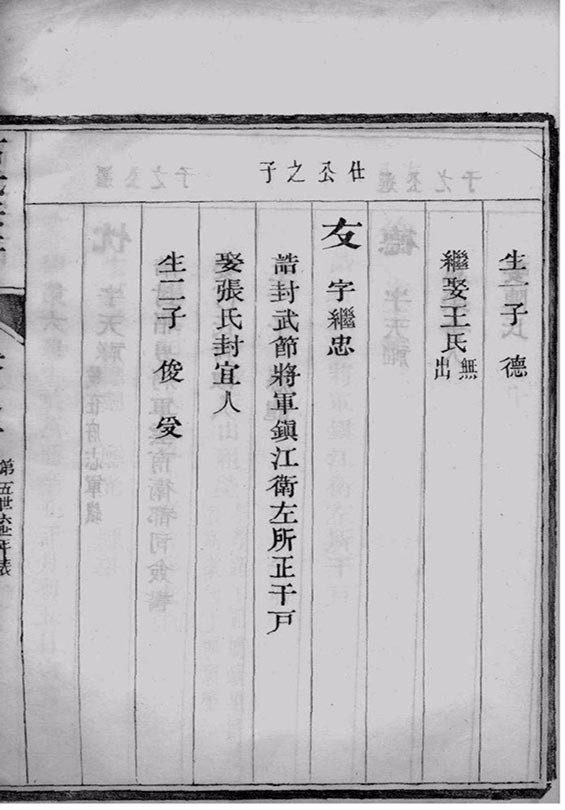 生一子 德
繼娶王氏無出
仕公之子
友 字繼忠
誥封武節將軍鎮江衛左所正千戶
娶張氏封宜人
生二子 俊
第五世六世年表